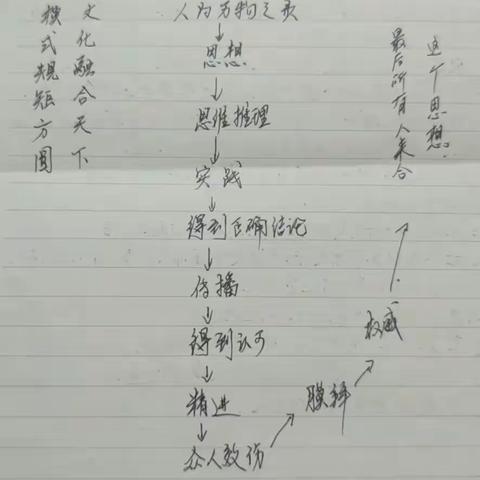 人为万物之灵
思想
思维推理
实践
得到正确结论
传播
得到认可
精进
众人效仿
膜拜
权威
这个思想
最后所有人来合
文化融合天下
模式规矩方圆